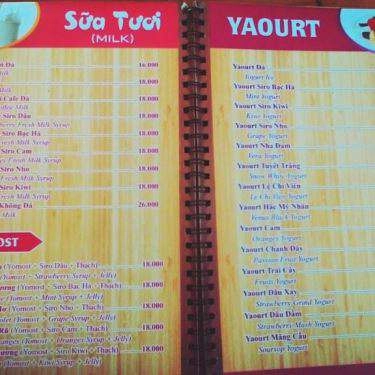 Sữa Tươi
(MILK)
Đá 16.000
Milk
18.000
Milk
Cafe Đá 18.000
Milk
Siro Dâu 18.000
Fresh Milk Syrup
Siro Bạc Hà 18.000
Fresh Milk Syrup
Siro Cam 18.000
Fresh Milk Syrup
Siro Nho 18.000
Fresh Milk Syrup
Siro Kiwi 18.000
Fresh Milk Syrup
Không Đá 26.000
Milk
OST
(Yomost + Siro Dâu + Thạch) 18.000
(Yomost + Strawberry Syrup + Jelly)
(Yomost + Siro Bạc Hà + Thạch) 18.000
(Yomost + Mint Syrup + Jelly)
(Yomost + Siro Nho + Thạch) 18.000
(Yomost + Grape Syrup + Jelly)
(Yomost + Siro Cam + Thạch) 18.000
(Yomost + Orange Syrup + Jelly)
(Yomost + Siro Kiwi + Thạch) 18.000
YAOURT
Yaourt Đá
Yogurt Ice
Yaourt Siro Bạc Hà
Mint Yogurt
Yaourt Siro Kiwi
Kiwi Yogurt
Yaourt Siro Nho
Grape Yogurt
Yaourt Nha Đam
Yogurt
Yaourt Tuyết Trắng
Snow White Yogurt
Yaourt Lệ Chi Viên
Le Chi Vien Yogurt
Yaourt Hắc Mỹ Nhân
Venus Black Yogurt
Yaourt Cam
Oranges Yogurt
Yaourt Chanh Dây
Passion Fruit Yogurt
Yaourt Trái Cây
Fruit Yogurt
Yaourt Dâu Xay
Strawberry Grind Yogurt
Yaourt Dâu Dầm
Strawberry Mash Yogurt
Yaourt Mãng Cầu
Soursop Yogurt